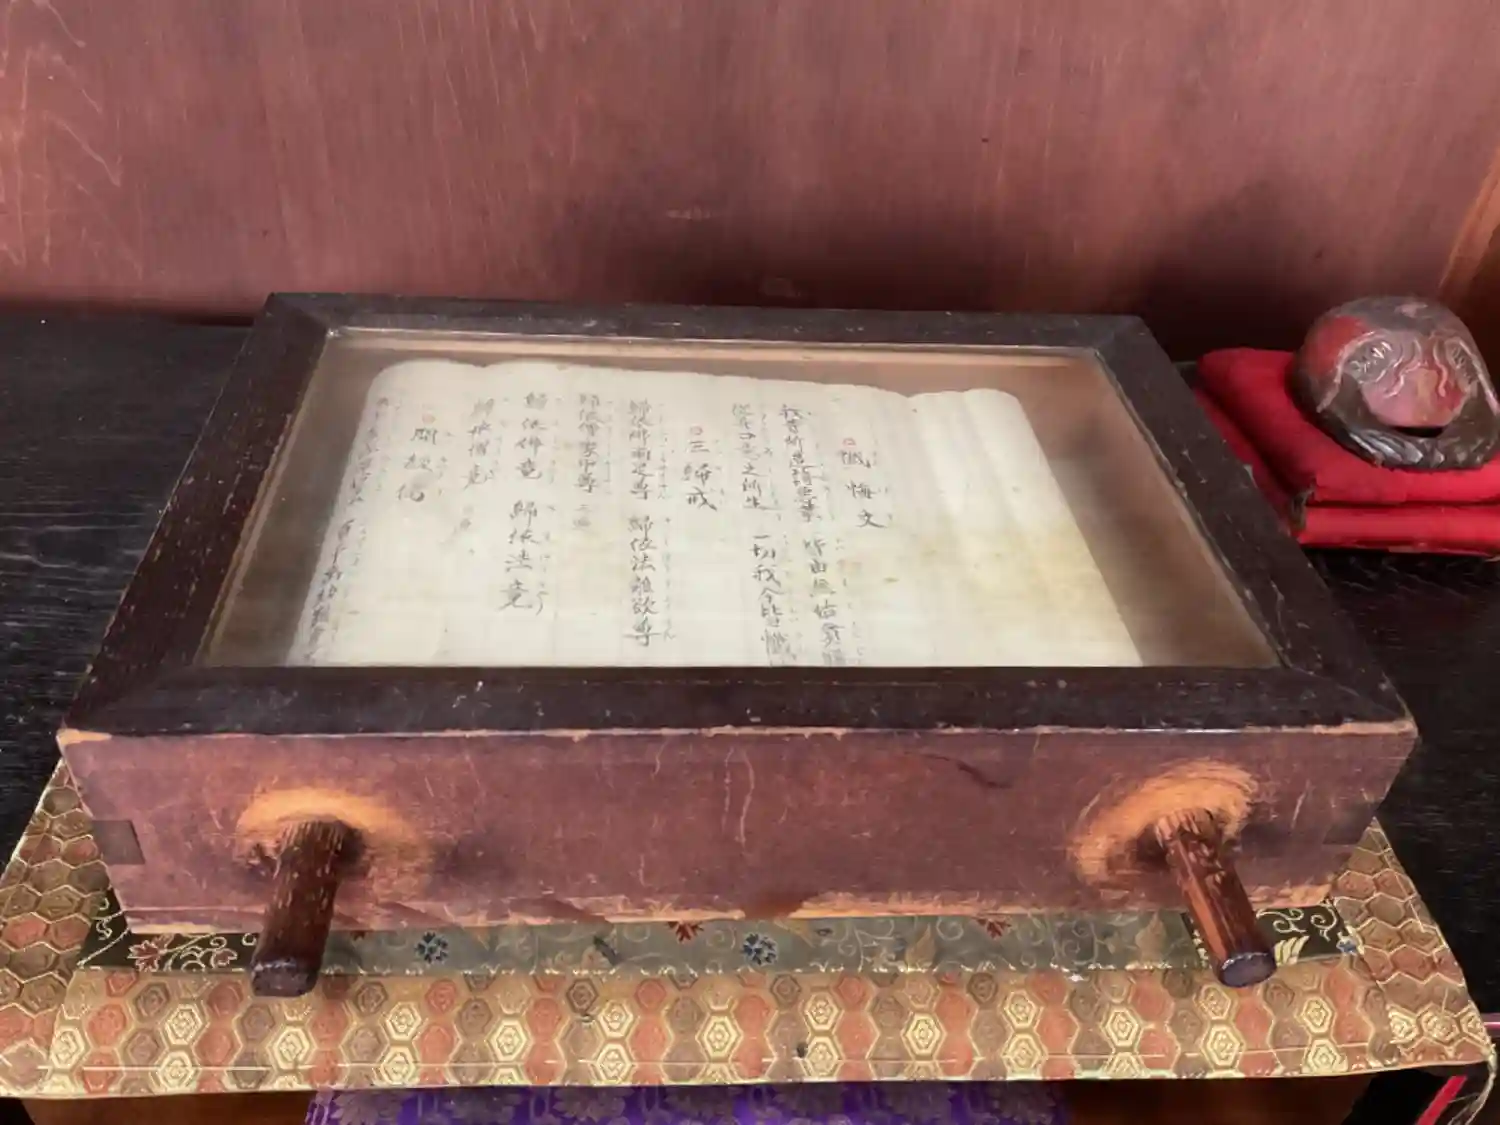 懺悔文
我昔所造諸悪業 皆由無始貪瞋
従身口意之所生 一切我今皆懺
三歸戒
歸依佛両足尊 歸依法離欲尊
歸依僧衆中尊 三遍
歸依佛竟 歸依法竟
歸依僧竟
開経偈